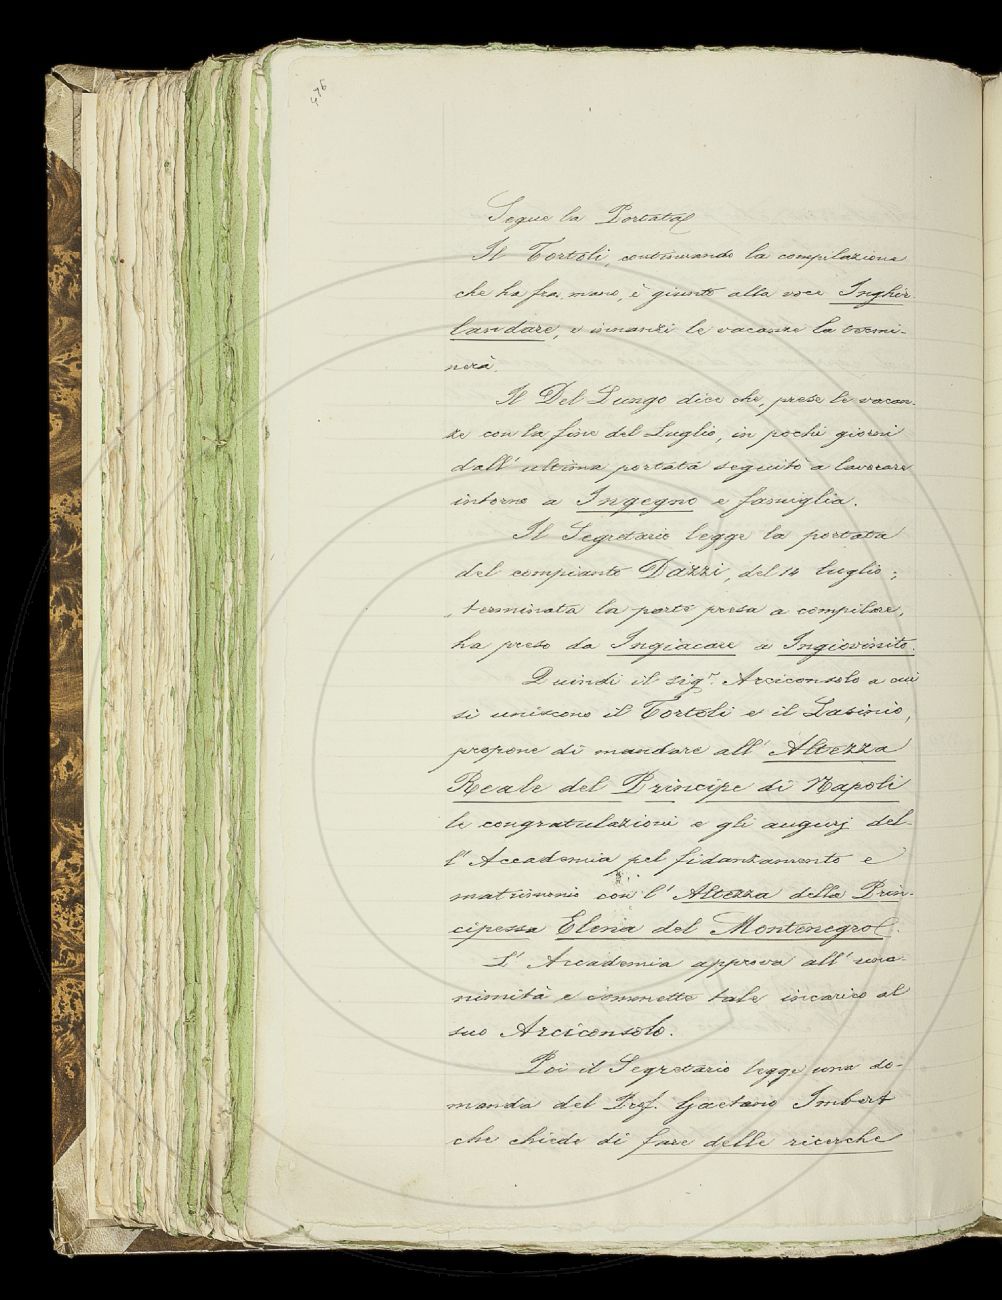 476
Segue la Portata
Il Tortoli, continuando la compilazione
che ha fra mano, è giunto alla voce Inghir-
landare, e innanzi le vacanze la termi-
nerà.
Il Del Lungo dice che, prese le vacan-
ze con la fine del Luglio, in pochi giorni
dall'ultima portata seguitò a lavorare
intorno a Ingegno e famiglia.
Il Segretario legge la portata
del compianto Dazzi, del 14 luglio:
terminata la parte presa a compilare,
ha preso da Ingiacare a Ingiovinito.
Quindi il Sigr. Arciconsolo a cui
si uniscono il Tortoli e il Lasinio,
propone di mandare all'Altezza
Reale del Principe di Napoli
le congratulazioni e gli augurj del-
l'Accademia pel fidanzamento e
matrimonio con l'Altezza della Prin-
cipessa Elena del Montenegro.
L'Accademia approva all'una-
nimità e commette tale incarico al
suo Arciconsolo.
Poi il Segretario legge una do-
manda del Prof. Gaetano Imbert
che chiede di fare delle ricerche